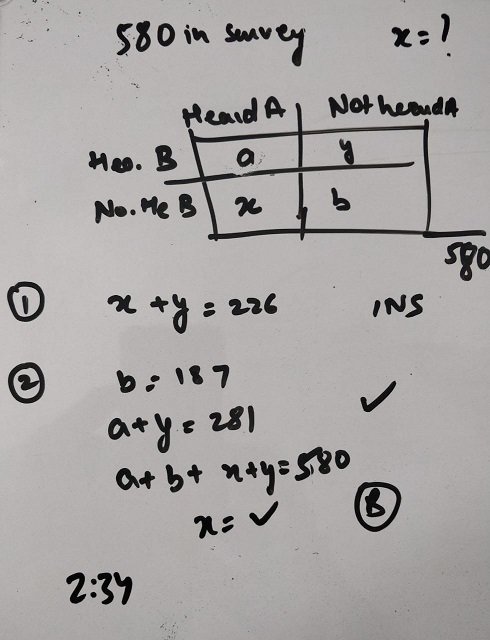 580 in survey x = ?
Heard A Not heard A
Hea. B a y
No. He B x b
580
① x + y = 226 INS
② b = 187 ✓
a + y = 281
a + b + x + y = 580
x = ✓ Ⓑ
2:34